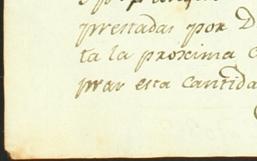 prestadas por D
ta la proxima C
prar esta cantida